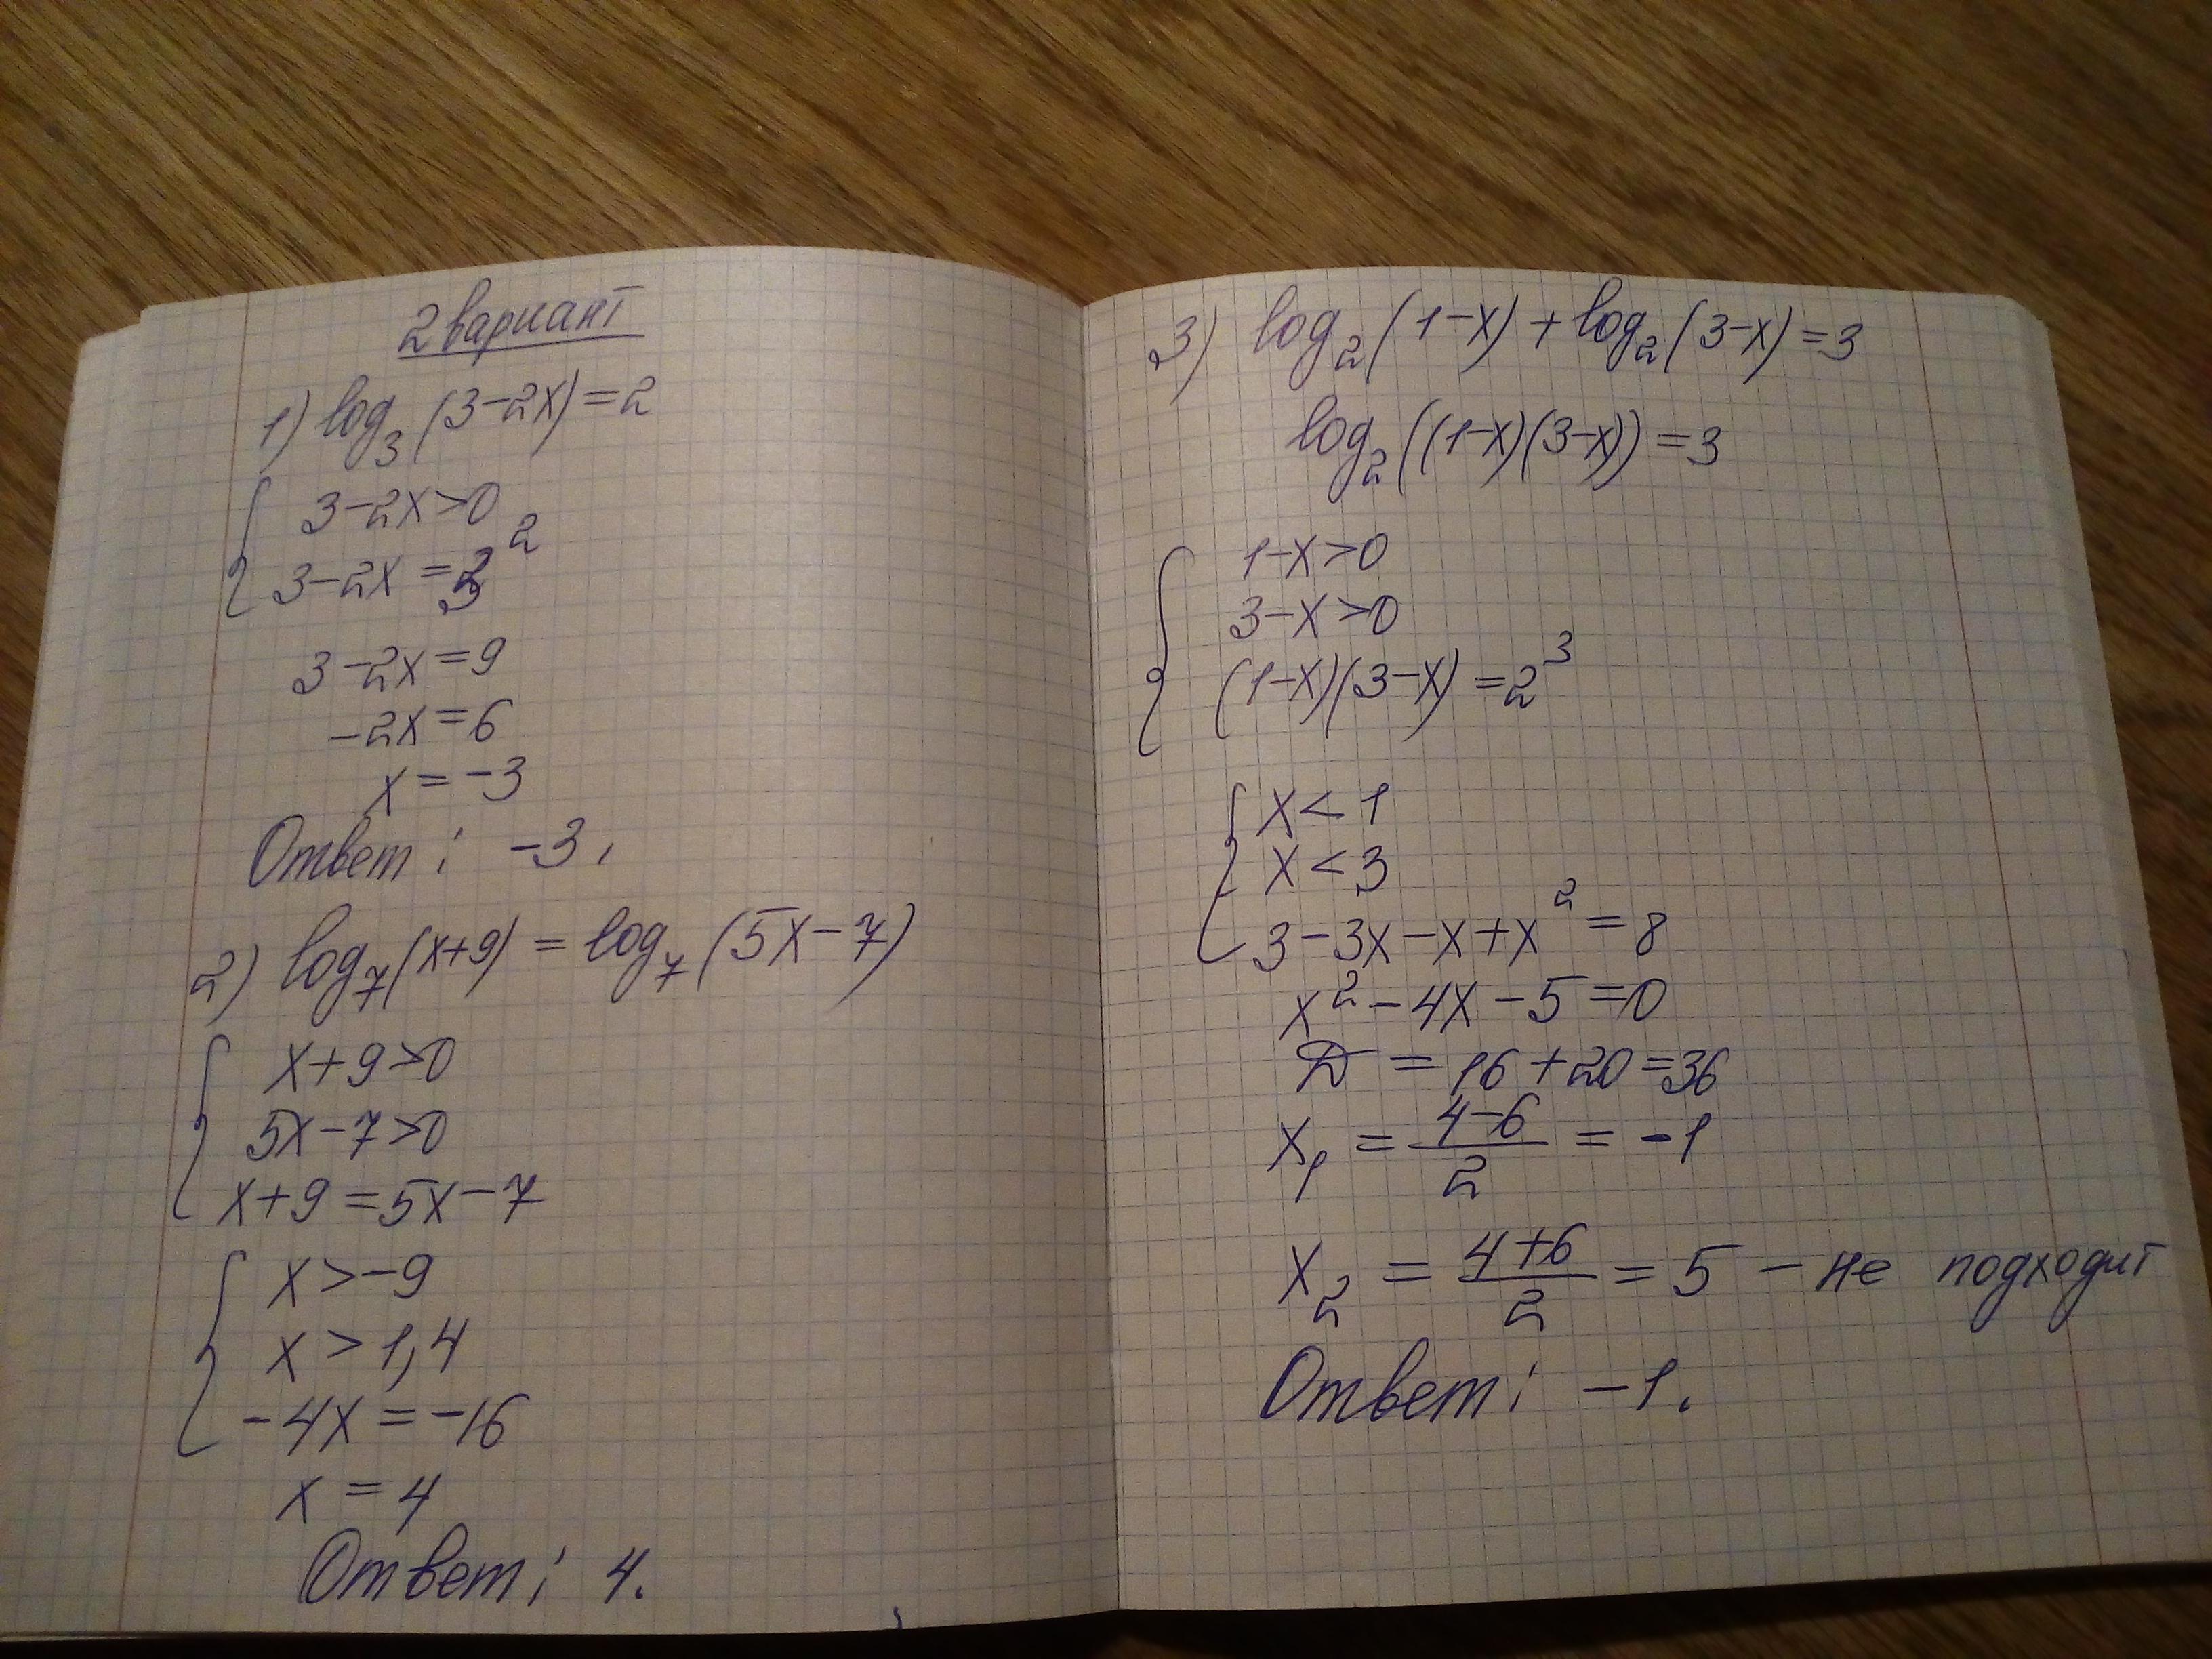 2 вариант
1) log₃(3-2x)=2
3-2x>0
3-2x=3²
3-2x=9
-2x=6
x=-3
Ответ: -3.
2) log₇(x+9)=log₇(5x-7)
x+9>0
5x-7>0
x+9=5x-7
x>-9
x>1,4
-4x=-16
x=4
Ответ: 4.
3) log₂(1-x)+log₂(3-x)=3
log₂((1-x)(3-x))=3
1-x>0
3-x>0
(1-x)(3-x)=2³
x<1
x<3
3-3x-x+x²=8
x²-4x-5=0
D=16+20=36
x₁=(4-6)/2=-1
x₂=(4+6)/2=5 - не подходит
Ответ: -1.